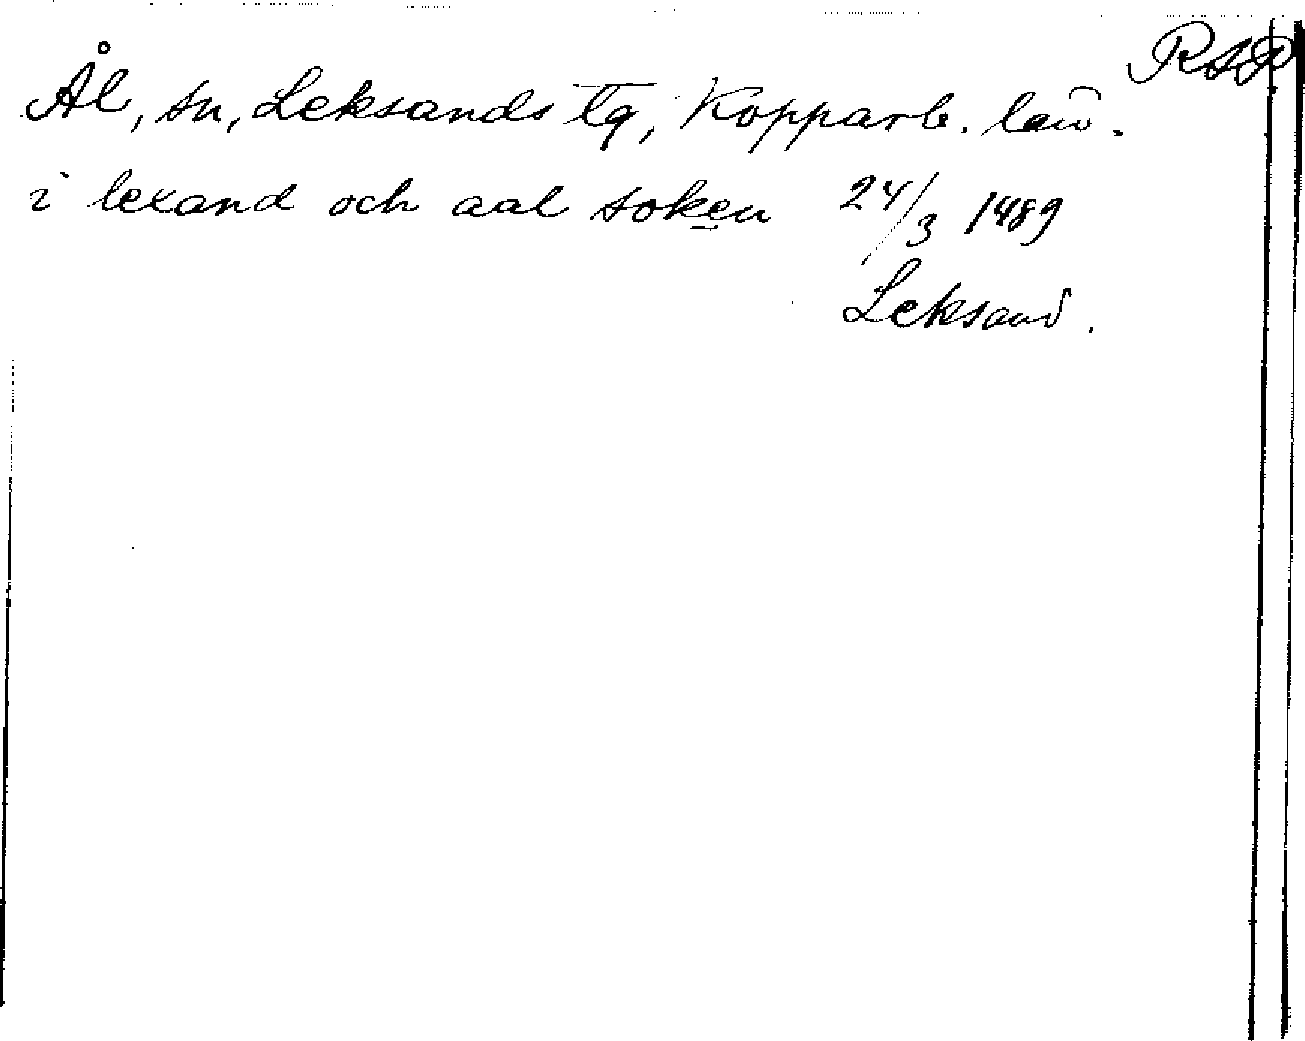 RAP
Ål, sn, Leksands tg, Kopparb. län.
i lexand och aal soken 24/3 1489
Leksand.